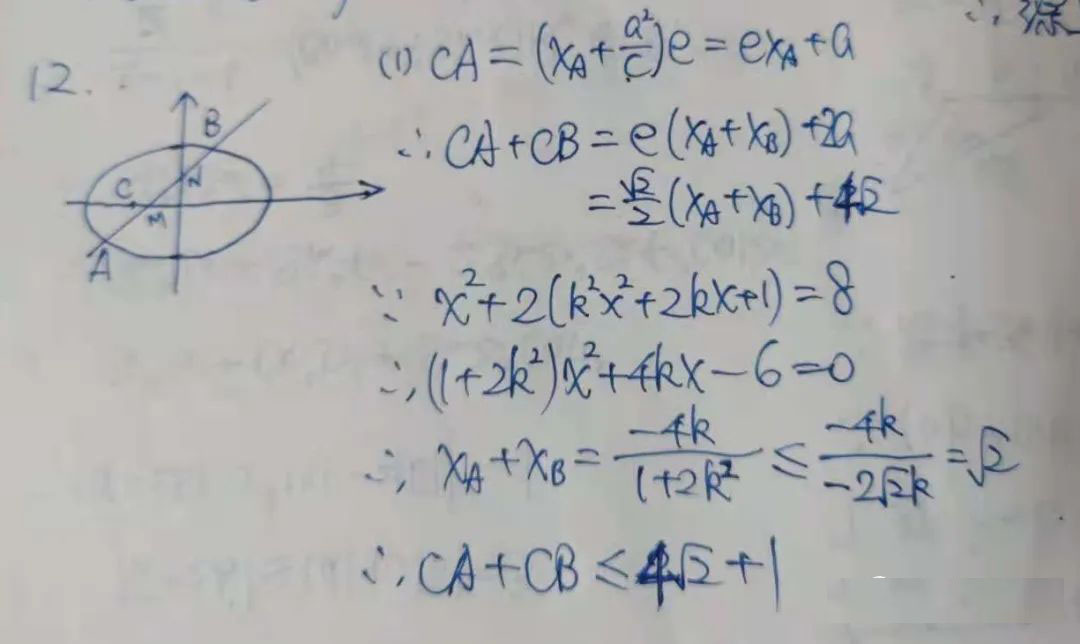 12.
(1) CA = (x_A + a²/c)e = ex_A + a
∴ CA + CB = e(x_A + x_B) + 2a
= √2/2 (x_A + x_B) + 4√2
∵ x² + 2(k²x² + 2kx + 1) = 8
∴ (1 + 2k²)x² + 4kx - 6 = 0
∴ x_A + x_B = -4k/(1 + 2k²) ≤ -4k/(-2√2k) = √2
∴ CA + CB ≤ 4√2 + 1
B
N
C
M
A